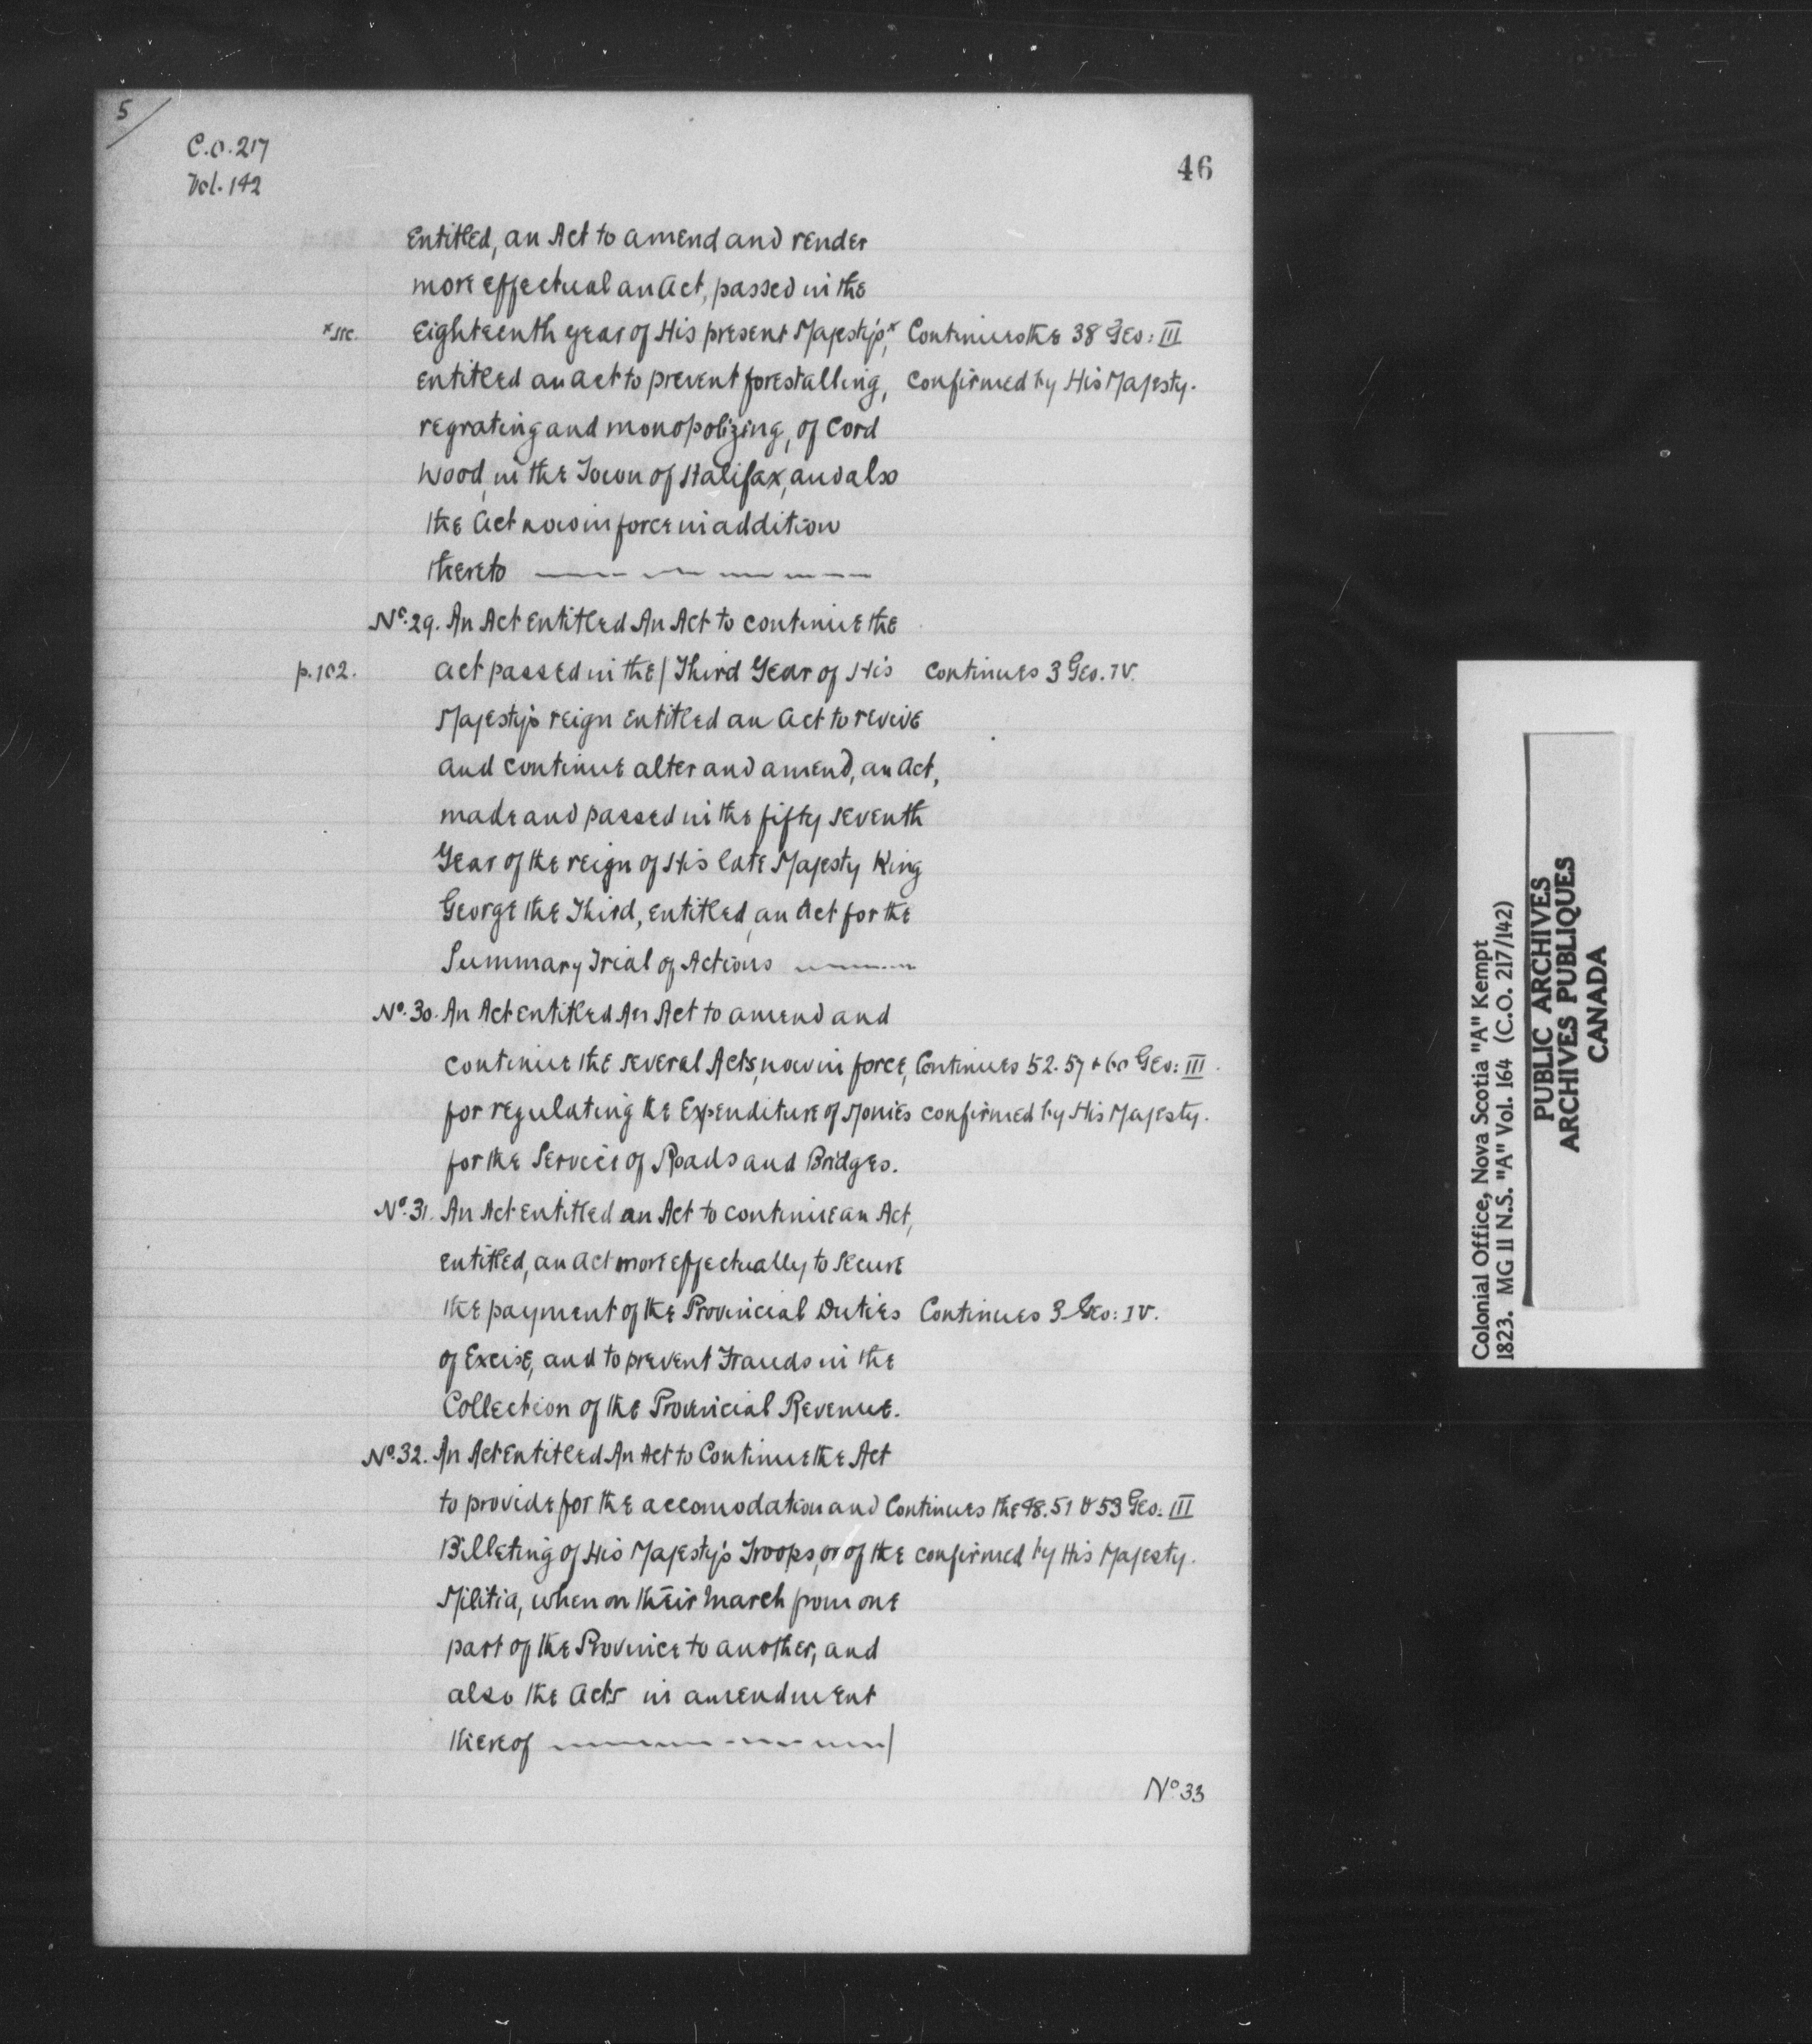 5/
C.O. 217
Vol. 142
46
Entitled, an Act to amend and render
more effectual an Act, passed in the
*sic. Eighteenth year of His present Majesty's,* Continues the 38 Geo: III
entitled an act to prevent forestalling, confirmed by His Majesty.
regrating and monopolizing, of Cord
Wood, in the Town of Halifax, and also
the Act now in force in addition
thereto
No. 29. An Act Entitled An Act to continue the
p. 102. act passed in the / Third Year of His Continues 3 Geo. IV.
Majesty's reign entitled an Act to revive
and continue alter and amend, an Act,
made and passed in the fifty seventh
Year of the reign of His late Majesty King
George the Third, entitled, an Act for the
Summary Trial of Actions
No. 30. An Act entitled An Act to amend and
continue the several Acts, now in force, Continues 52. 57 + 60 Geo: III.
for regulating the Expenditure of Monies confirmed by His Majesty.
for the Service of Roads and Bridges.
No. 31. An Act Entitled an Act to continue an Act,
entitled, an act more effectually to secure
the payment of the Provincial Duties Continues 3 Geo: IV.
of Excise, and to prevent Frauds in the
Collection of the Provincial Revenue.
No. 32. An Act Entitled An Act to Continue the Act
to provide for the accomodation and Continues the 48. 51 & 53 Geo. III
Billeting of His Majesty's Troops, or of the confirmed by His Majesty.
Militia, when on their march from one
part of the Province to another, and
also the Acts in amendment
thereof
No. 33
Colonial Office, Nova Scotia "A" Kempt
1823. MG 11 N.S. "A" Vol. 164 (C.O. 217/142)
PUBLIC ARCHIVES
ARCHIVES PUBLIQUES
CANADA